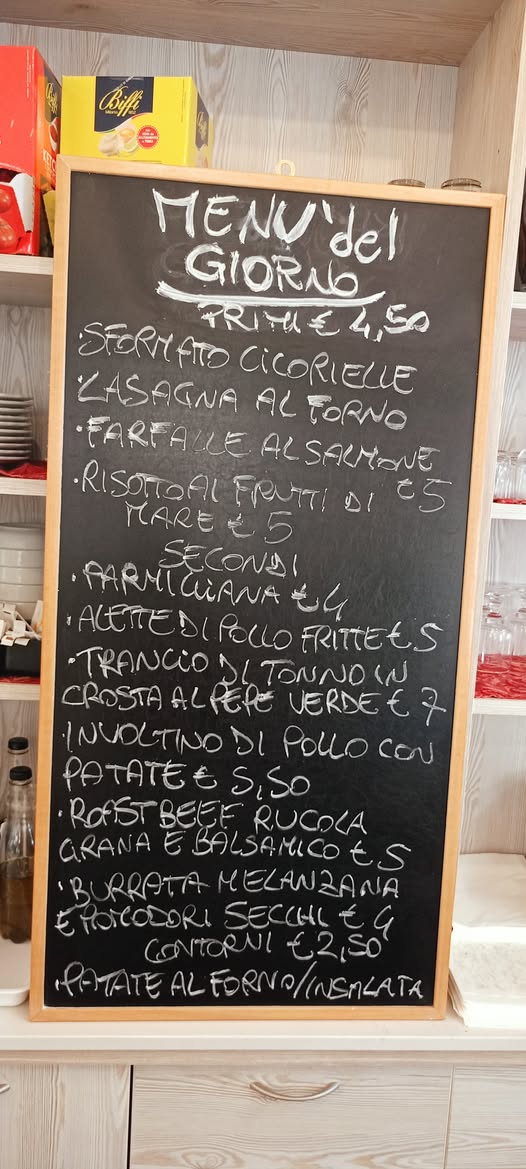 Biffi
MENU' del
GIORNO
PRIMI € 4,50
·SFORMATO CICORIELLE
·LASAGNA AL FORNO
·FARFALLE AL SALMONE
€5
·RISOTTO AI FRUTTI DI
MARE € 5
SECONDI
·PARMIGIANA € 4
·ALETTE DI POLLO FRITTE € 5
·TRANCIO DI TONNO IN
CROSTA AL PEPE VERDE € 7
·INVOLTINO DI POLLO CON
PATATE € 5,50
·ROAST BEEF RUCOLA
GRANA E BALSAMICO € 5
·BURRATA MELANZANA
E POMODORI SECCHI € 4
CONTORNI € 2,50
·PATATE AL FORNO/INSALATA